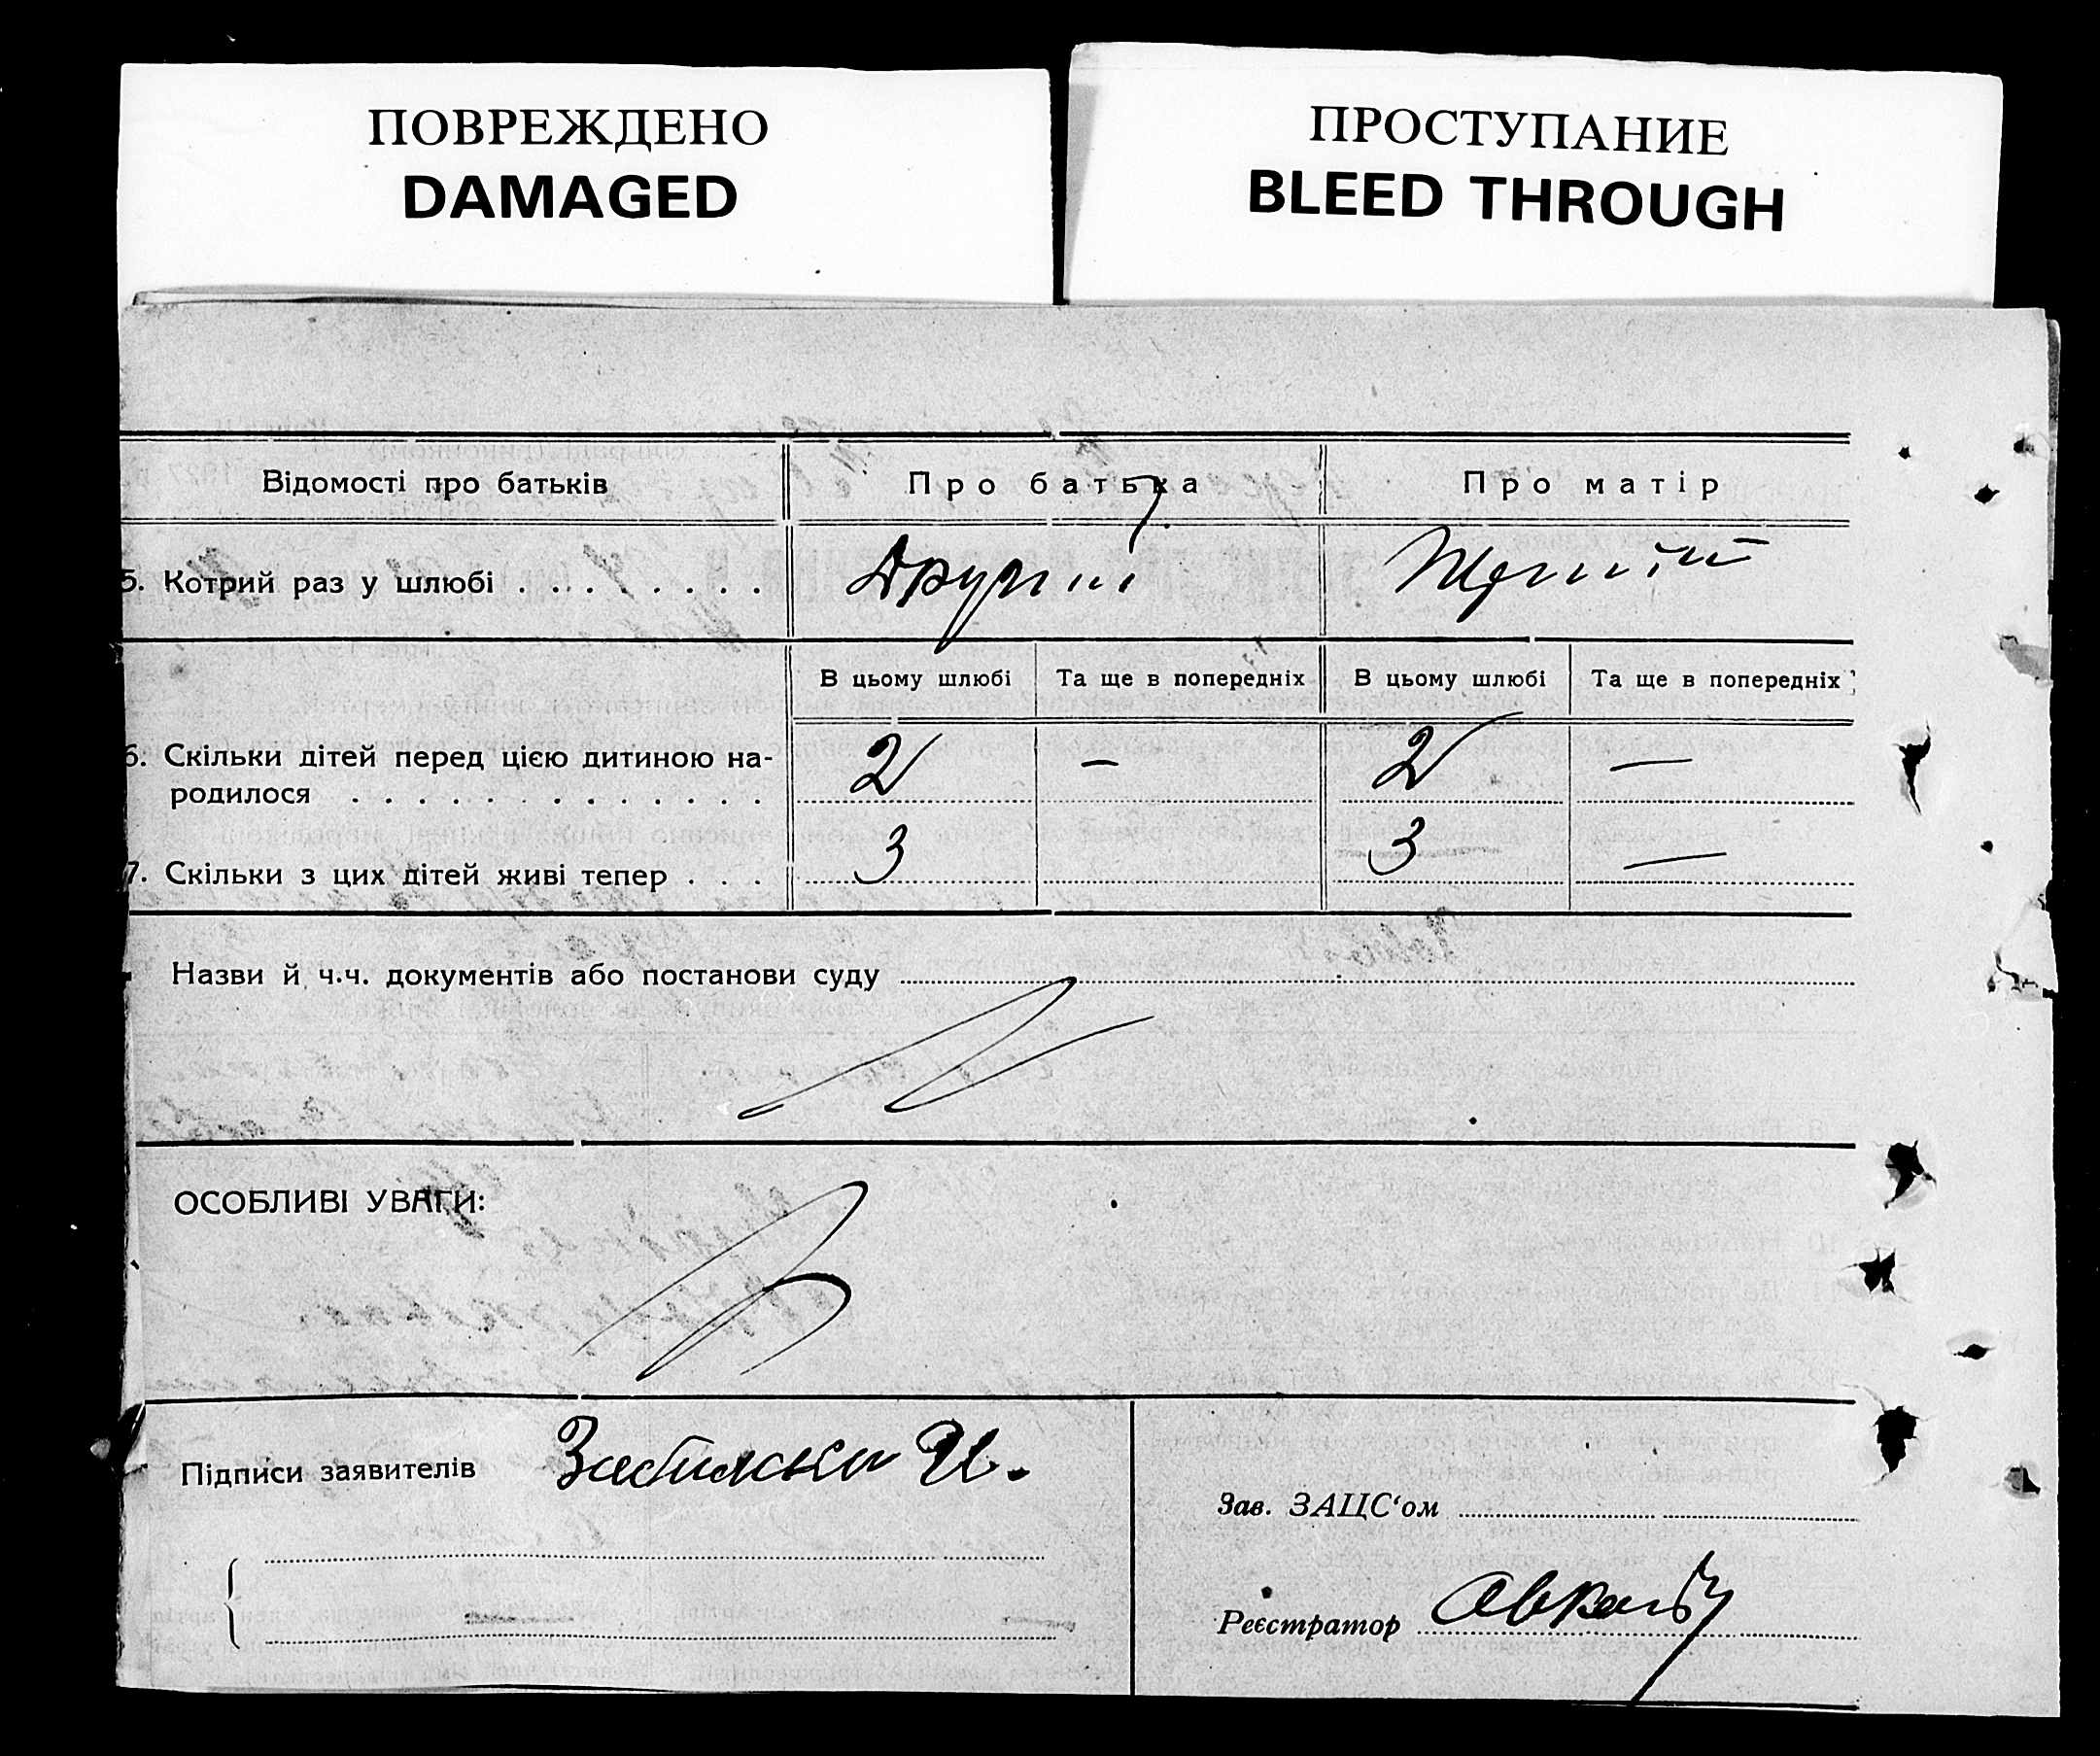 ПОВРЕЖДЕНО
DAMAGED
ПРОСТУПАНИЕ
BLEED THROUGH
Відомості про батьків Про батька Про матір
5. Котрий раз у шлюбі . . . . . . . . Другий
В цьому шлюбі Та ще в попередніх В цьому шлюбі Та ще в попередніх
6. Скільки дітей перед цією дитиною на- 2 — 2 —
родилося . . . . . . . . . . . . .
7. Скільки з цих дітей живі тепер . . . 3 3 —
Назви й ч.ч. документів або постанови суду
ОСОБЛИВІ УВАГИ:
Підписи заявителів
Зав. ЗАЦС‘ом
Реєстратор